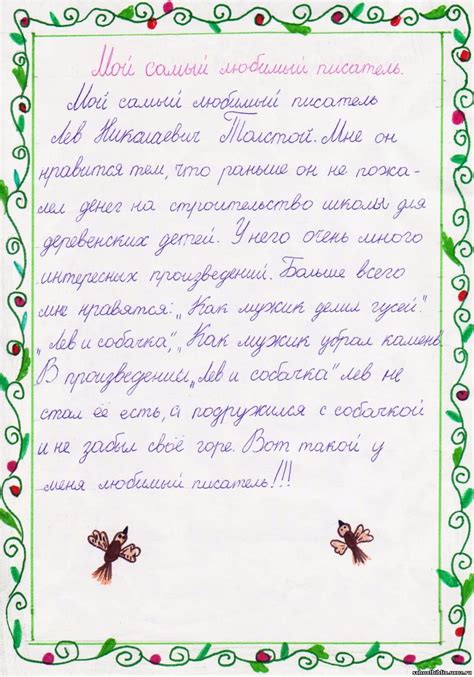 Мой самый любимый писатель.
Мой самый любимый писатель
Лев Николаевич Толстой. Мне он
нравится тем, что раньше он не пожа-
лел денег на строительство школы для
деревенских детей. У него очень много
интересных произведений. Больше всего
мне нравятся: „Как мужик делил гусей".
„Лев и собачка", „Как мужик убрал камень.
В произведении „Лев и собачка" лев не
стал её есть, а подружился с собачкой
и не забыл своё горе. Вот такой у
меня любимый писатель!!!